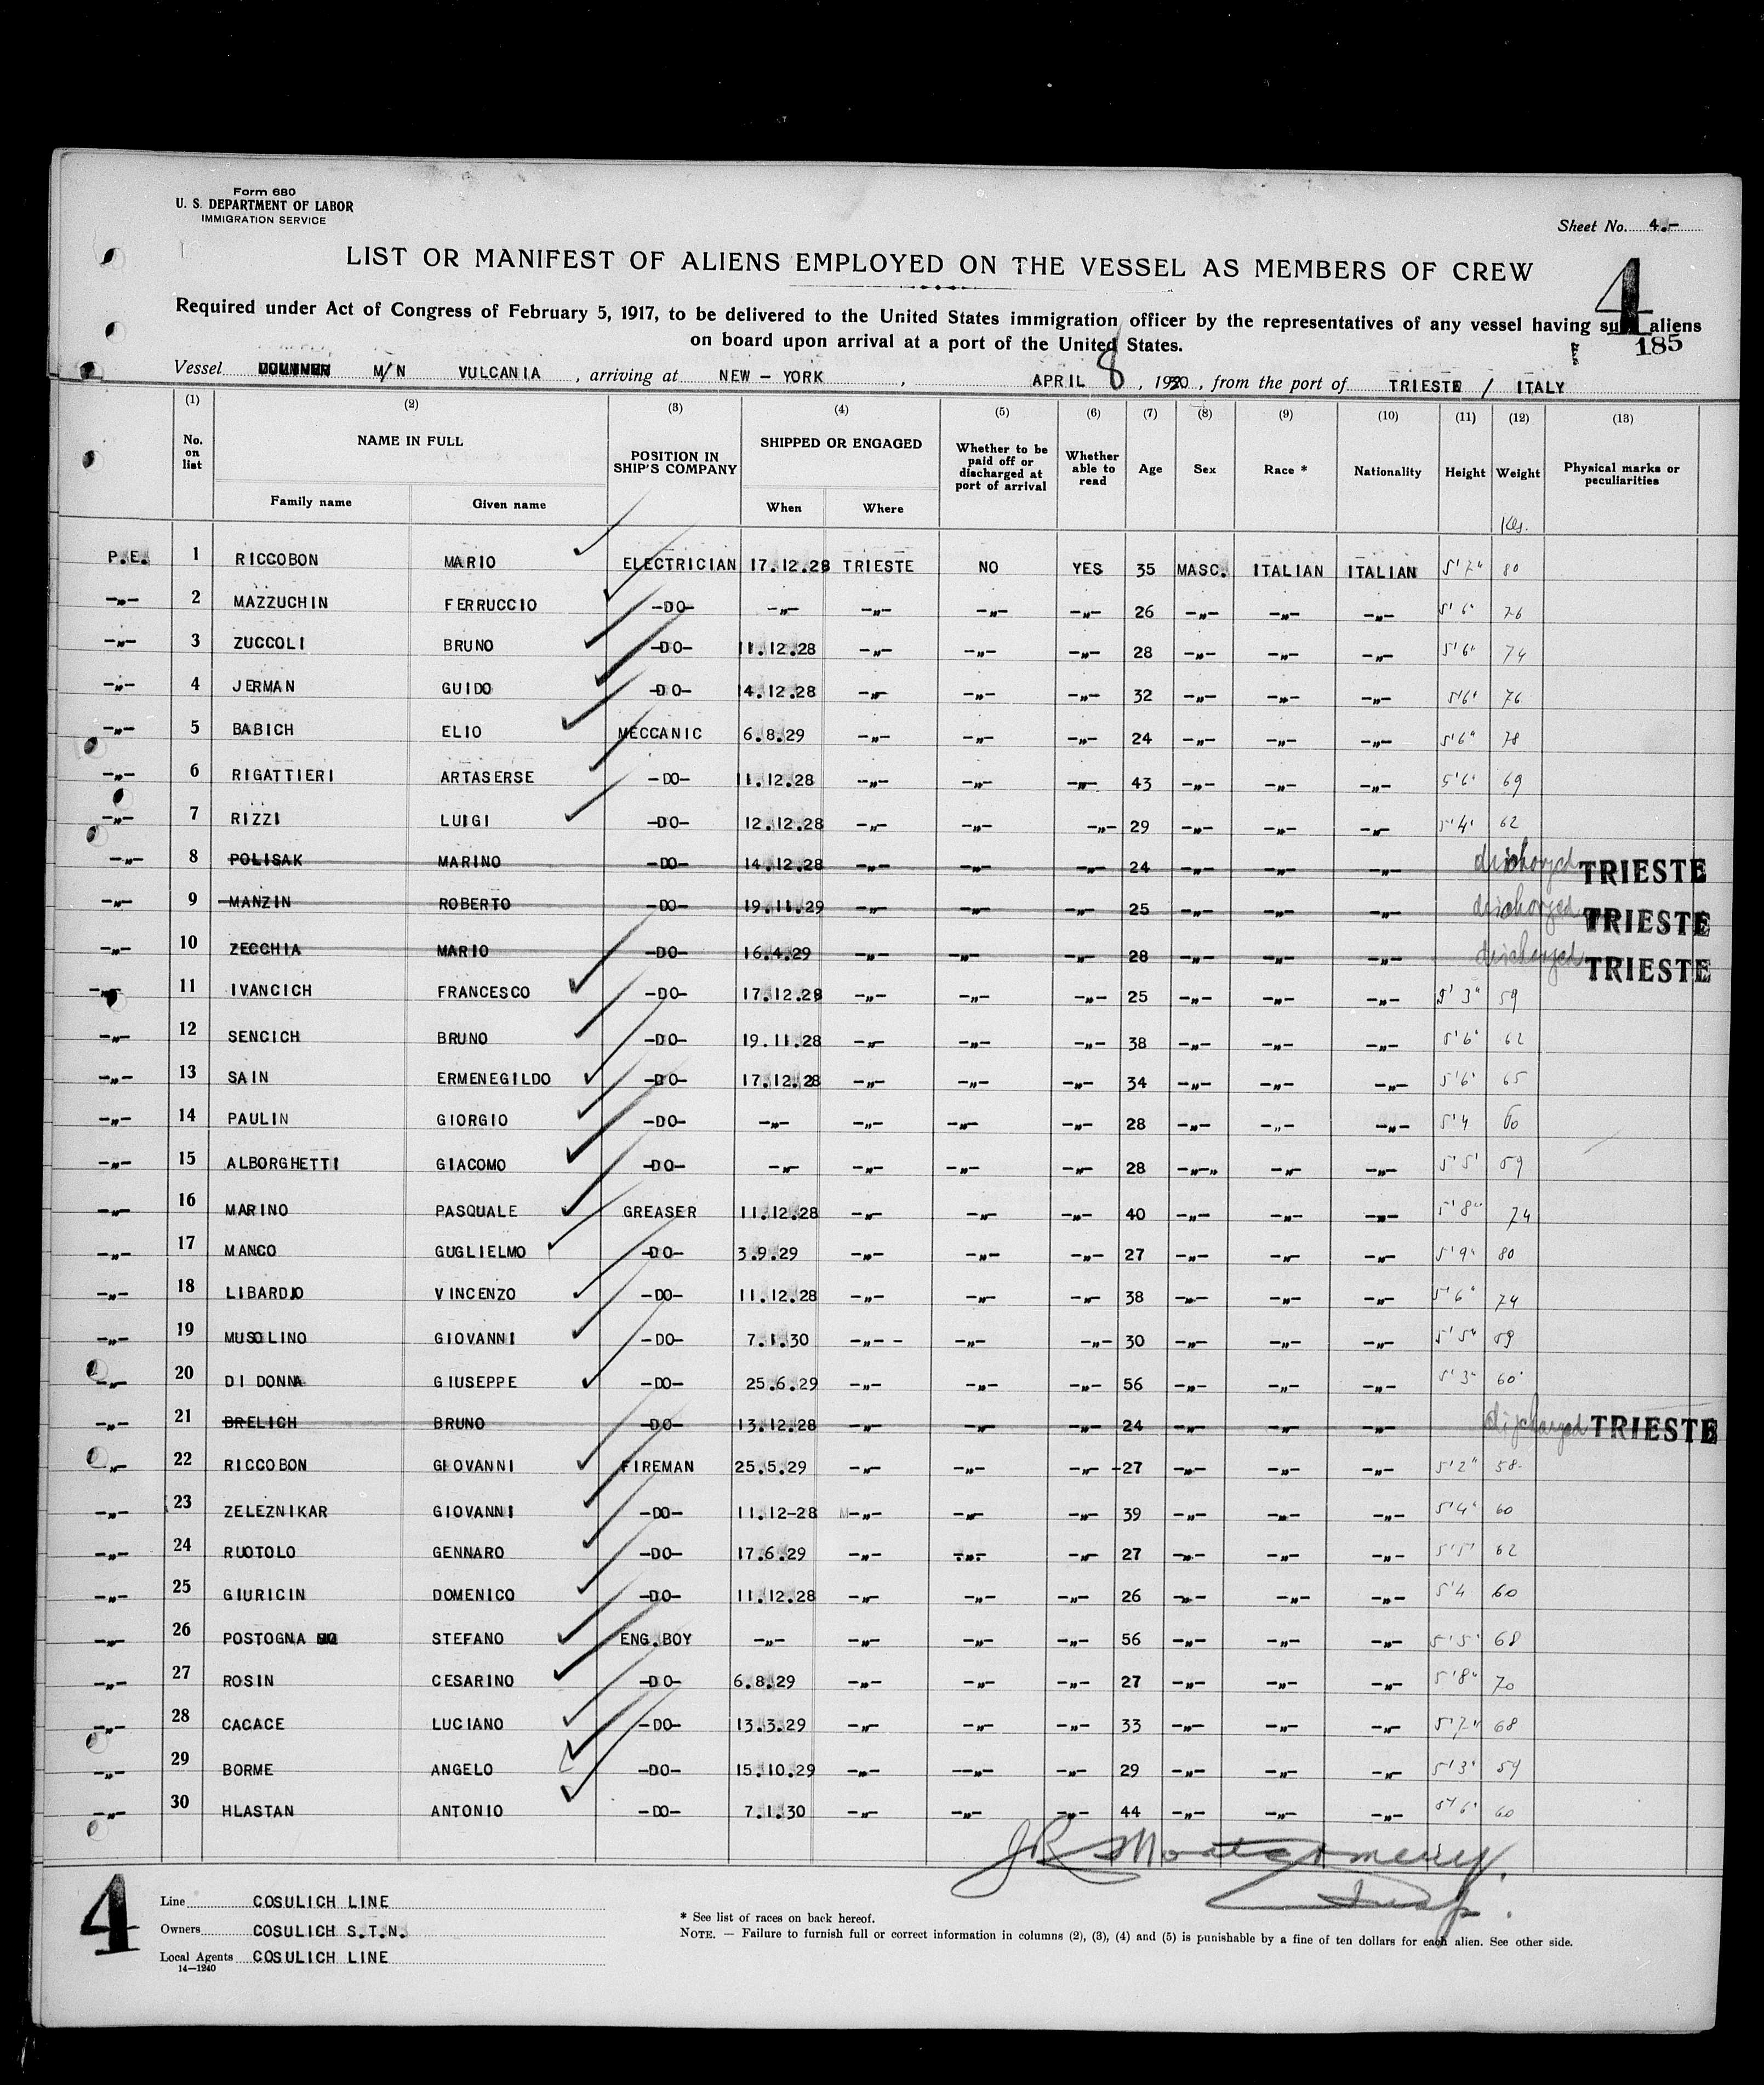 Form 680
U. S. DEPARTMENT OF LABOR
IMMIGRATION SERVICE
Sheet No. 4.-
LIST OR MANIFEST OF ALIENS EMPLOYED ON THE VESSEL AS MEMBERS OF CREW
4
Required under Act of Congress of February 5, 1917, to be delivered to the United States immigration officer by the representatives of any vessel having such aliens
on board upon arrival at a port of the United States.
185
Vessel M/N VULCANIA , arriving at NEW - YORK , APRIL 8 , 1930 , from the port of TRIESTE / ITALY
(1) (2) (3) (4) (5) (6) (7) (8) (9) (10) (11) (12) (13)
No. on list NAME IN FULL POSITION IN SHIP'S COMPANY SHIPPED OR ENGAGED Whether to be paid off or discharged at port of arrival Whether able to read Age Sex Race * Nationality Height Weight Physical marks or peculiarities
Family name Given name When Where
Kgs.
P.E. 1 RICCOBON MARIO ELECTRICIAN 17.12.28 TRIESTE NO YES 35 MASC. ITALIAN ITALIAN 5'7" 80
-"- 2 MAZZUCHIN FERRUCCIO -DO- -"- -"- -"- -"- 26 -"- -"- -"- 5'6" 76
-"- 3 ZUCCOLI BRUNO -DO- 11.12.28 -"- -"- -"- 28 -"- -"- -"- 5'6" 74
-"- 4 JERMAN GUIDO -DO- 14.12.28 -"- -"- -"- 32 -"- -"- -"- 5'6" 76
-"- 5 BABICH ELIO MECCANIC 6.8.29 -"- -"- -"- 24 -"- -"- -"- 5'6" 78
-"- 6 RIGATTIERI ARTASERSE -DO- 11.12.28 -"- -"- -"- 43 -"- -"- -"- 5'6" 69
-"- 7 RIZZI LUIGI -DO- 12.12.28 -"- -"- -"- 29 -"- -"- -"- 5'4" 62
-"- 8 POLISAK MARINO -DO- 14.12.28 -"- -"- -"- 24 -"- -"- -"- discharged TRIESTE
-"- 9 MANZIN ROBERTO -DO- 19.11.29 -"- -"- -"- 25 -"- -"- -"- discharged TRIESTE
-"- 10 ZECCHIA MARIO -DO- 16.4.29 -"- -"- -"- 28 -"- -"- -"- discharged TRIESTE
-"- 11 IVANCICH FRANCESCO -DO- 17.12.28 -"- -"- -"- 25 -"- -"- -"- 5'3" 59
-"- 12 SENCICH BRUNO -DO- 19.11.28 -"- -"- -"- 38 -"- -"- -"- 5'6" 62
-"- 13 SAIN ERMENEGILDO -DO- 17.12.28 -"- -"- -"- 34 -"- -"- -"- 5'6" 65
-"- 14 PAULIN GIORGIO -DO- -"- -"- -"- -"- 28 -"- -"- -"- 5'4 60
-"- 15 ALBORGHETTI GIACOMO -DO- -"- -"- -"- -"- 28 -"-" -"- -"- 5'5" 59
-"- 16 MARINO PASQUALE GREASER 11.12.28 -"- -"- -"- 40 -"- -"- -"- 5'8" 74
-"- 17 MANCO GUGLIELMO -DO- 3.9.29 -"- -"- -"- 27 -"- -"- -"- 5'9" 80
-"- 18 LIBARDIO VINCENZO -DO- 11.12.28 -"- -"- -"- 38 -"- -"- -"- 5'6" 74
-"- 19 MUSOLINO GIOVANNI -DO- 7.1.30 -"-- -"- -"- 30 -"- -"- -"- 5'5" 59
-"- 20 DI DONNA GIUSEPPE -DO- 25.6.29 -"- -"- -"- 56 -"- -"- -"- 5'3" 60
-"- 21 BRELICH BRUNO -DO- 13.12.28 -"- -"- -"- 24 -"- -"- -"- discharged TRIESTE
-"- 22 RICCOBON GIOVANNI FIREMAN 25.5.29 -"- -"- -"- 27 -"- -"- -"- 5'2" 58
-"- 23 ZELEZNIKAR GIOVANNI -DO- 11.12-28 -"- -"- -"- 39 -"- -"- -"- 5'4" 60
-"- 24 RUOTOLO GENNARO -DO- 17.6.29 -"- -"- -"- 27 -"- -"- -"- 5'5" 62
-"- 25 GIURICIN DOMENICO -DO- 11.12.28 -"- -"- -"- 26 -"- -"- -"- 5'4 60
-"- 26 POSTOGNA STEFANO ENG.BOY -"- -"- -"- -"- 56 -"- -"- -"- 5'5" 68
-"- 27 ROSIN CESARINO -DO- 6.8.29 -"- -"- -"- 27 -"- -"- -"- 5'8" 70
-"- 28 CACACE LUCIANO -DO- 13.3.29 -"- -"- -"- 33 -"- -"- -"- 5'7" 68
-"- 29 BORME ANGELO -DO- 15.10.29 -"- -"- -"- 29 -"- -"- -"- 5'3" 59
-"- 30 HLASTAN ANTONIO -DO- 7.1.30 -"- -"- -"- 44 -"- -"- -"- 5'6" 60
JR Montgomery
Insp.
4
Line COSULICH LINE
Owners COSULICH S.T.N.
Local Agents COSULICH LINE
14—1240
* See list of races on back hereof.
NOTE. — Failure to furnish full or correct information in columns (2), (3), (4) and (5) is punishable by a fine of ten dollars for each alien. See other side.